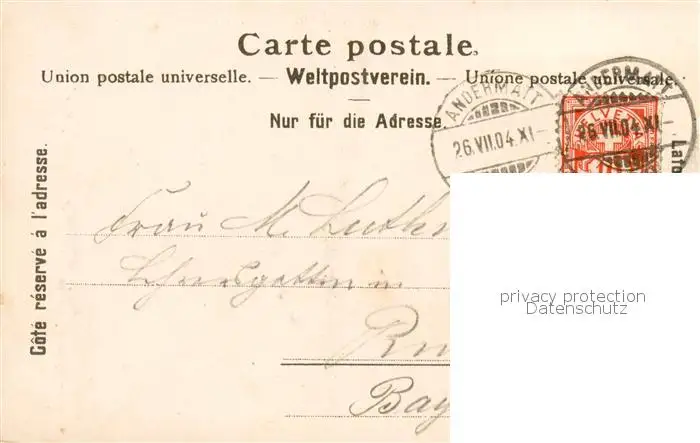 Carte postale.
Union postale universelle. — Weltpostverein. — Unione postale universale.
Nur für die Adresse.
Côté réservé à l'adresse.
ANDERMATT
26.VII.04.XI
ANDERMATT
26.VII.04.XI
HELVETIA
Frau M. Luth
Lehrersgattin in
Bay
privacy protection
Datenschutz